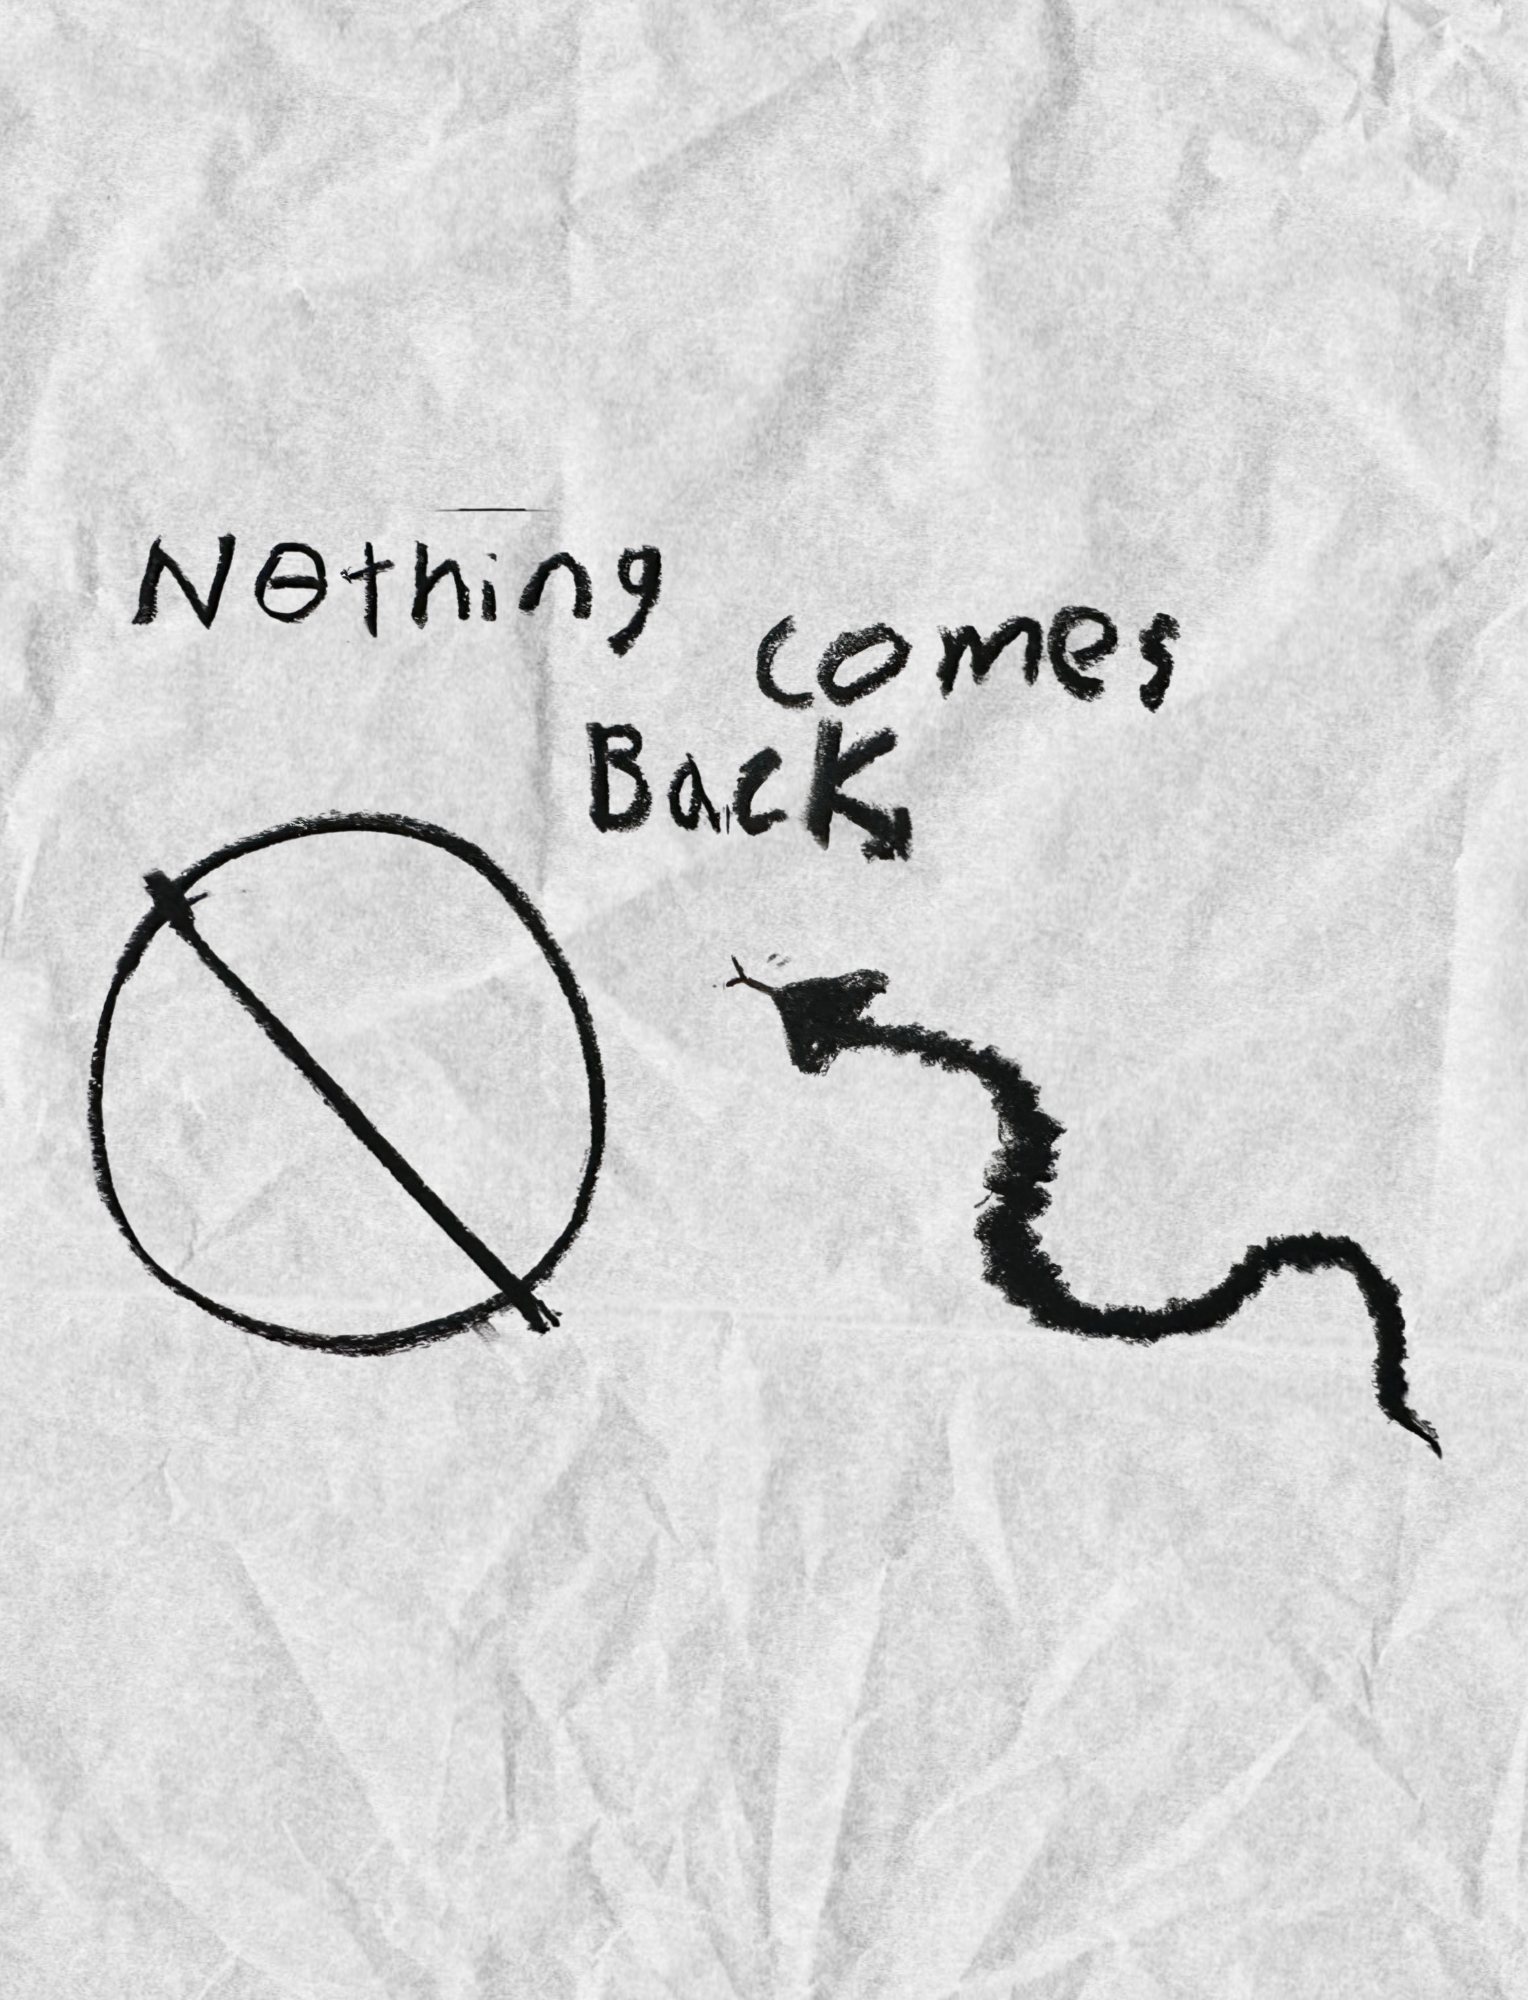 Nothing
comes
Back